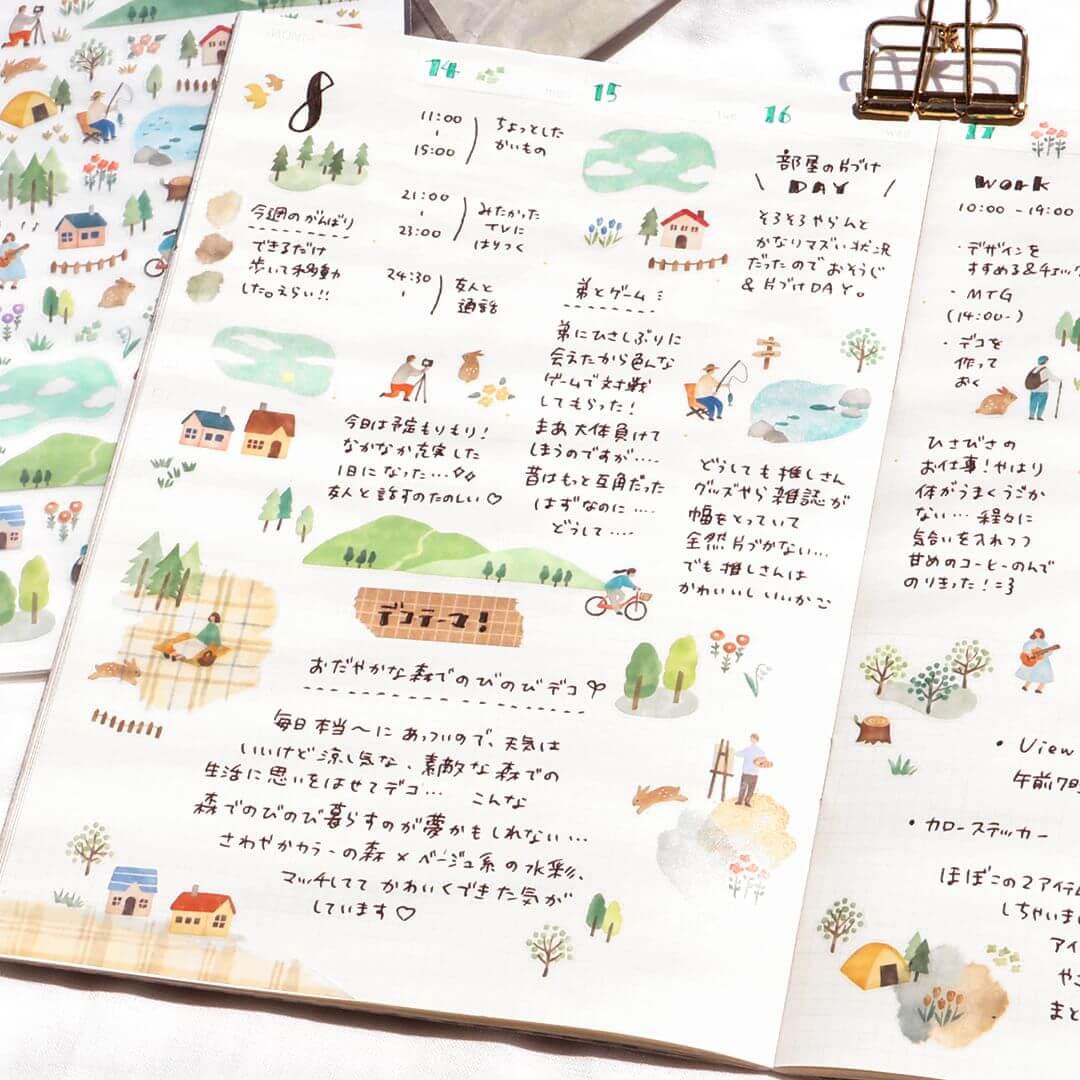 8
今週のがんばり
できるだけ
歩いて移動
した。えらい!!
14
11:00
-
15:00
ちょっとした
かいもの
21:00
-
23:00
みたかった
TVに
はりつく
24:30
-
友人と
通話
今日は予定もりもり!
なかなか充実した
1日になった…
友人と話すのたのしい♡
15
弟とゲーム
弟にひさしぶりに
会えたから色んな
ゲームで対戦
してもらった!
まあ大体負けて
しまうのですが….
昔はもっと互角だった
はずなのに….
どうして….
16
部屋の片づけ
\ DAY /
そろそろやらんと
かなりマズい状況
だったのでおそうじ
&片づけDAY。
どうしても推しさん
グッズやら雑誌が
幅をとっていて
全然片づかない…
でも推しさんは
かわいいしいいかこ
17
WORK
10:00 -19:00
・デザインを
すすめる&チェック
・MTG
(14:00-)
・デコを
作って
おく
ひさびさの
お仕事!やはり
体がうまくうごか
ない… 程々に
気合いを入れつつ
甘めのコーヒーのんで
のりきった!=3
デコテーマ!
おだやかな森でのびのびデコ
毎日本当〜にあっついので、天気は
いいけど涼し気な、素敵な森での
生活に思いをはせてデコ… こんな
森でのびのび暮らすのが夢かもしれない…
さわやかカラーの森×ベージュ系の水彩、
マッチしてて かわいくできた気が
しています♡
・View
午前7時
・カローステッカー
ほぼこの2アイテム
しちゃいま
アイ
やこ
まと